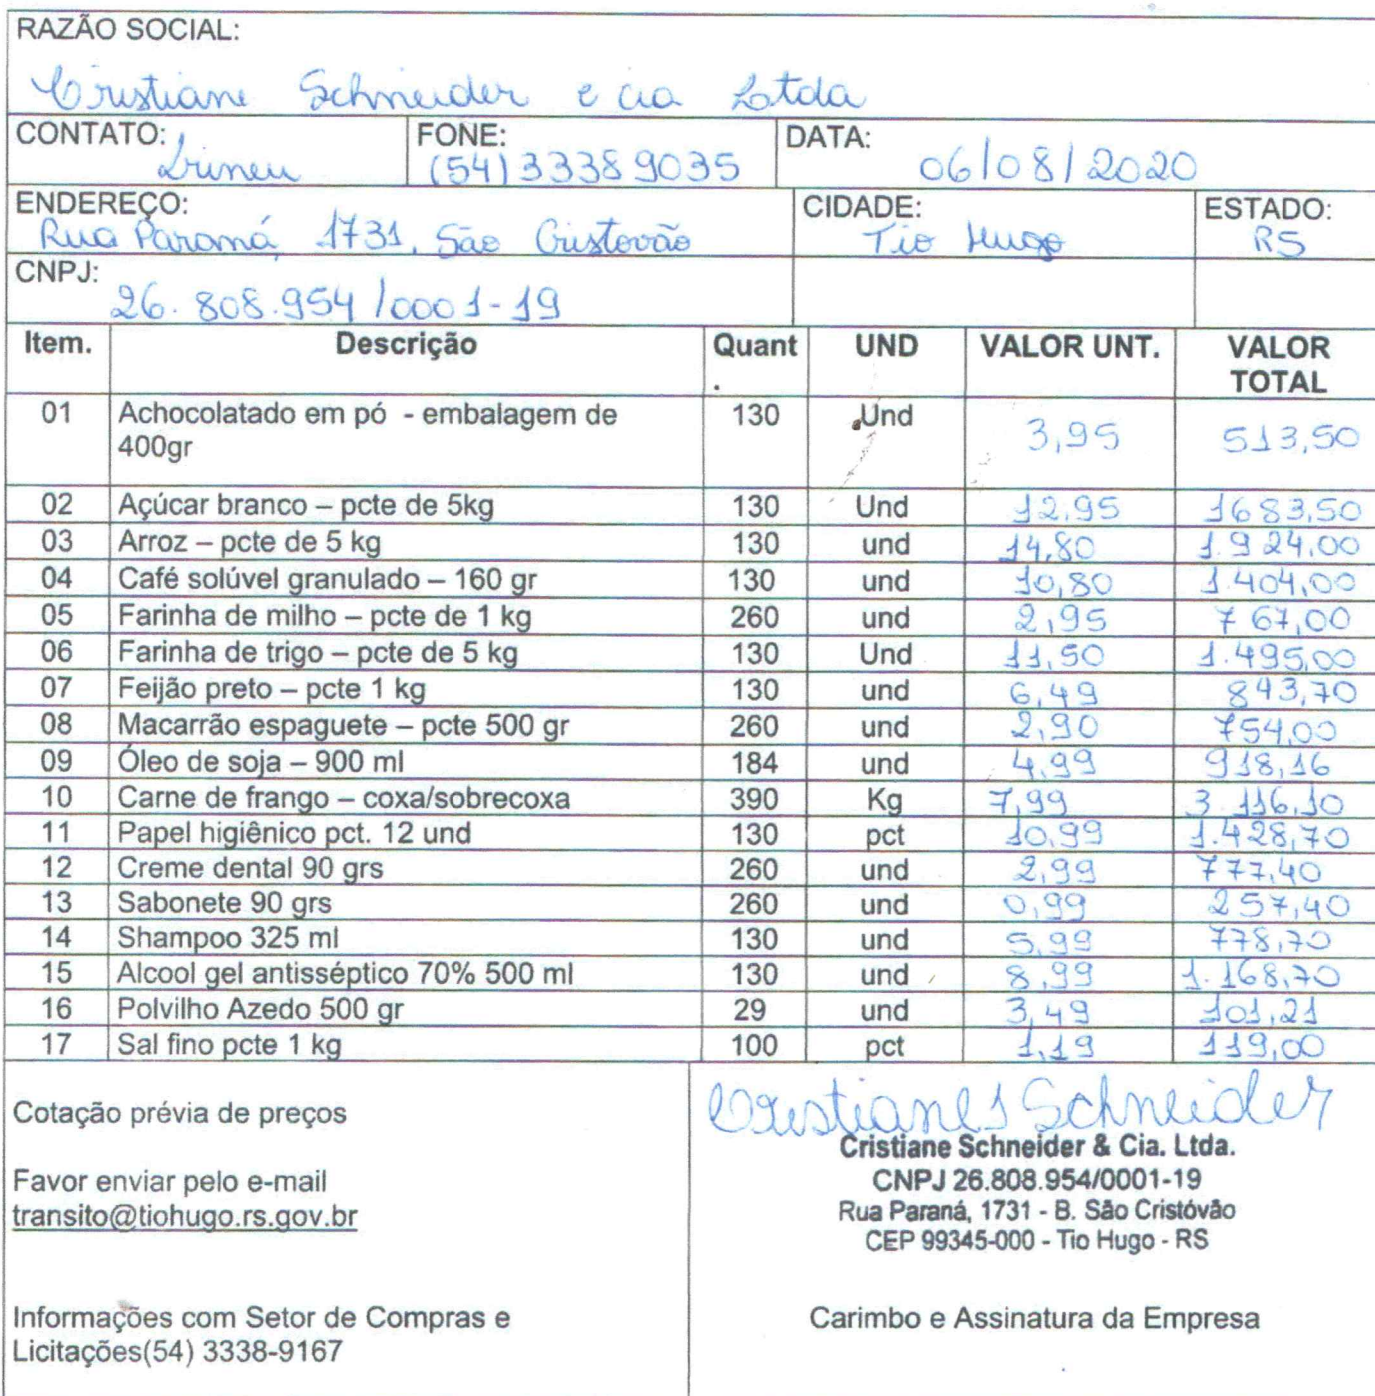 RAZÃO SOCIAL:
Cristiane Schneider e cia Ltda
CONTATO: Irineu FONE: (54) 33389035 DATA: 06/08/2020
ENDEREÇO: Rua Paraná, 1731, São Cristovão CIDADE: Tio Hugo ESTADO: RS
CNPJ: 26.808.954/0001-19
Item. Descrição Quant. UND VALOR UNT. VALOR TOTAL
01 Achocolatado em pó - embalagem de 400gr 130 Und 3,95 513,50
02 Açúcar branco – pcte de 5kg 130 Und 12,95 1683,50
03 Arroz – pcte de 5 kg 130 und 14,80 1.924,00
04 Café solúvel granulado – 160 gr 130 und 10,80 1.404,00
05 Farinha de milho – pcte de 1 kg 260 und 2,95 767,00
06 Farinha de trigo – pcte de 5 kg 130 Und 11,50 1.495,00
07 Feijão preto – pcte 1 kg 130 und 6,49 843,70
08 Macarrão espaguete – pcte 500 gr 260 und 2,90 754,00
09 Óleo de soja – 900 ml 184 und 4,99 918,16
10 Carne de frango – coxa/sobrecoxa 390 Kg 7,99 3.116,10
11 Papel higiênico pct. 12 und 130 pct 10,99 1.428,70
12 Creme dental 90 grs 260 und 2,99 777,40
13 Sabonete 90 grs 260 und 0,99 257,40
14 Shampoo 325 ml 130 und 5,99 778,70
15 Alcool gel antisséptico 70% 500 ml 130 und 8,99 1.168,70
16 Polvilho Azedo 500 gr 29 und 3,49 101,21
17 Sal fino pcte 1 kg 100 pct 1,19 119,00
Cotação prévia de preços
Favor enviar pelo e-mail
transito@tiohugo.rs.gov.br
Informações com Setor de Compras e
Licitações(54) 3338-9167
Cristiane Schneider
Cristiane Schneider & Cia. Ltda.
CNPJ 26.808.954/0001-19
Rua Paraná, 1731 - B. São Cristóvão
CEP 99345-000 - Tio Hugo - RS
Carimbo e Assinatura da Empresa